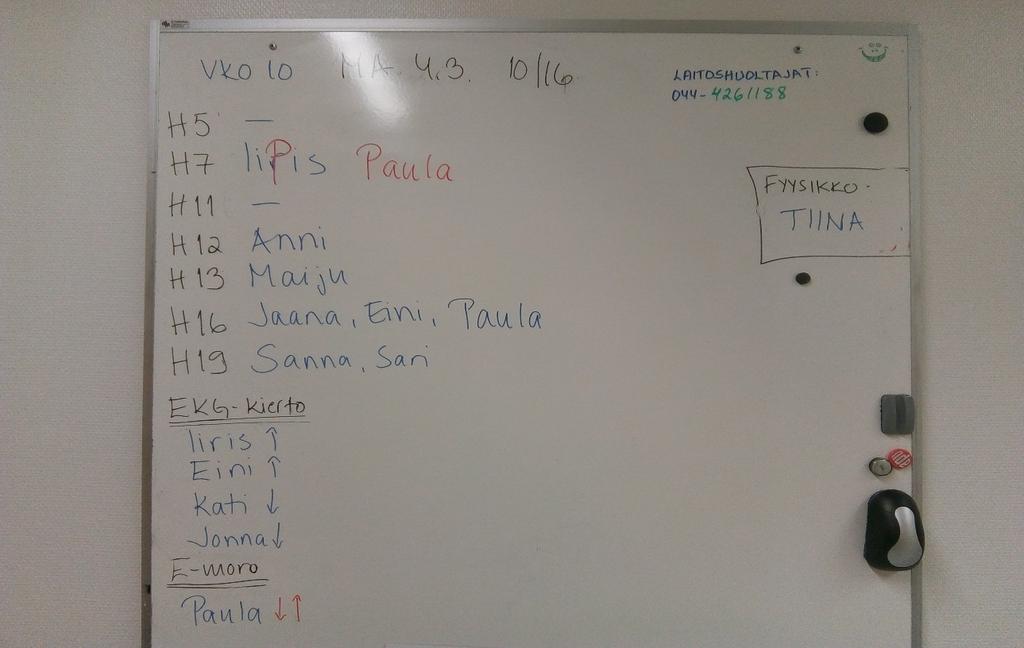 VKO 10 MA. 4.3. 10/16
LAITOSHUOLTAJAT:
044-4261188
H5 —
H7 IiPis Paula
H11 —
FYYSIKKO-
TIINA
H12 Anni
H13 Maiju
H16 Jaana, Eini, Paula
H19 Sanna, Sari
EKG-kierto
Iiris ↑
Eini ↑
Kati ↓
Jonna ↓
E-moro
Paula ↓↑